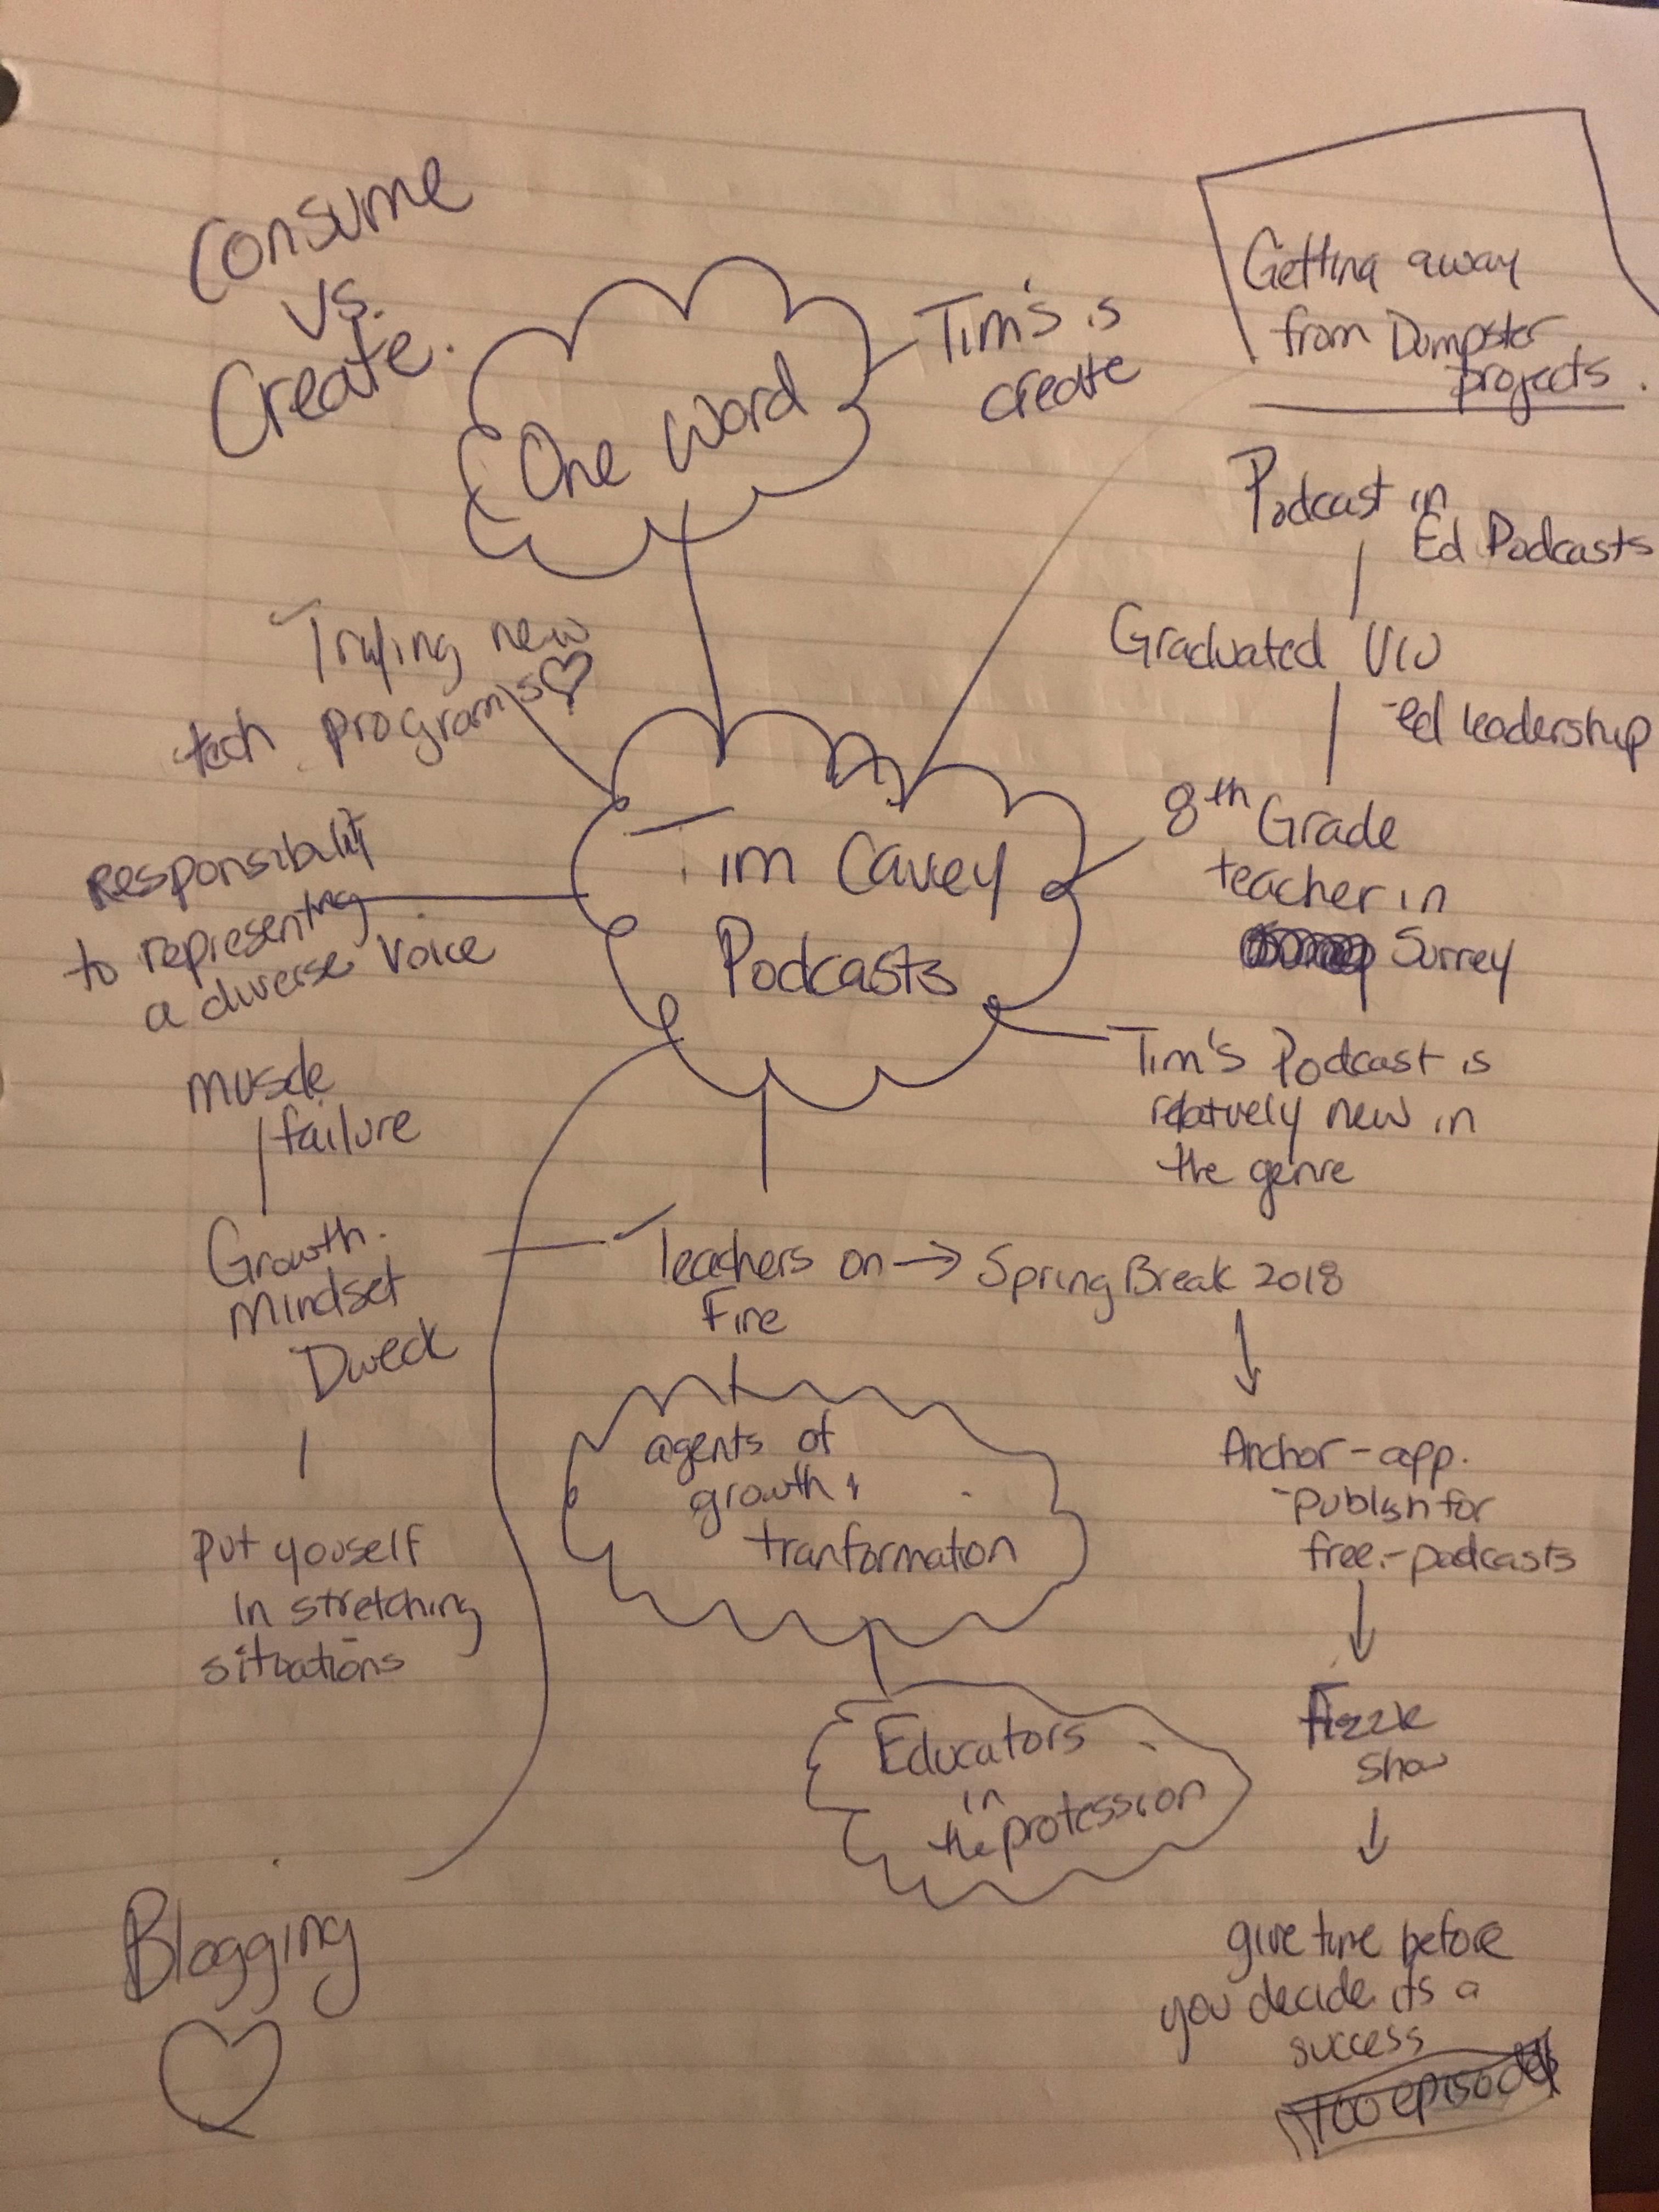 Consume
vs.
Create.
One Word
Tim's is
create
Getting away
from Dumpster
projects.
Podcast in
Ed Podcasts
Graduated VIU
-ed leadership
8th Grade
teacher in
Surrey
Trying new
tech programs♡
Responsibility
to representing
a diverse voice
Tim Cavey
Podcasts
Tim's Podcast is
relatively new in
the genre
muscle
failure
Growth
Mindset
Dweck
put youself
in stretching
situations
Teachers on → Spring Break 2018
Fire
agents of
growth &
tranformation
Educators
in
the profession
Anchor - app.
- publish for
free. - podcasts
Fizzle
show
give time before
you decide its a
success
100 episodes
Blogging